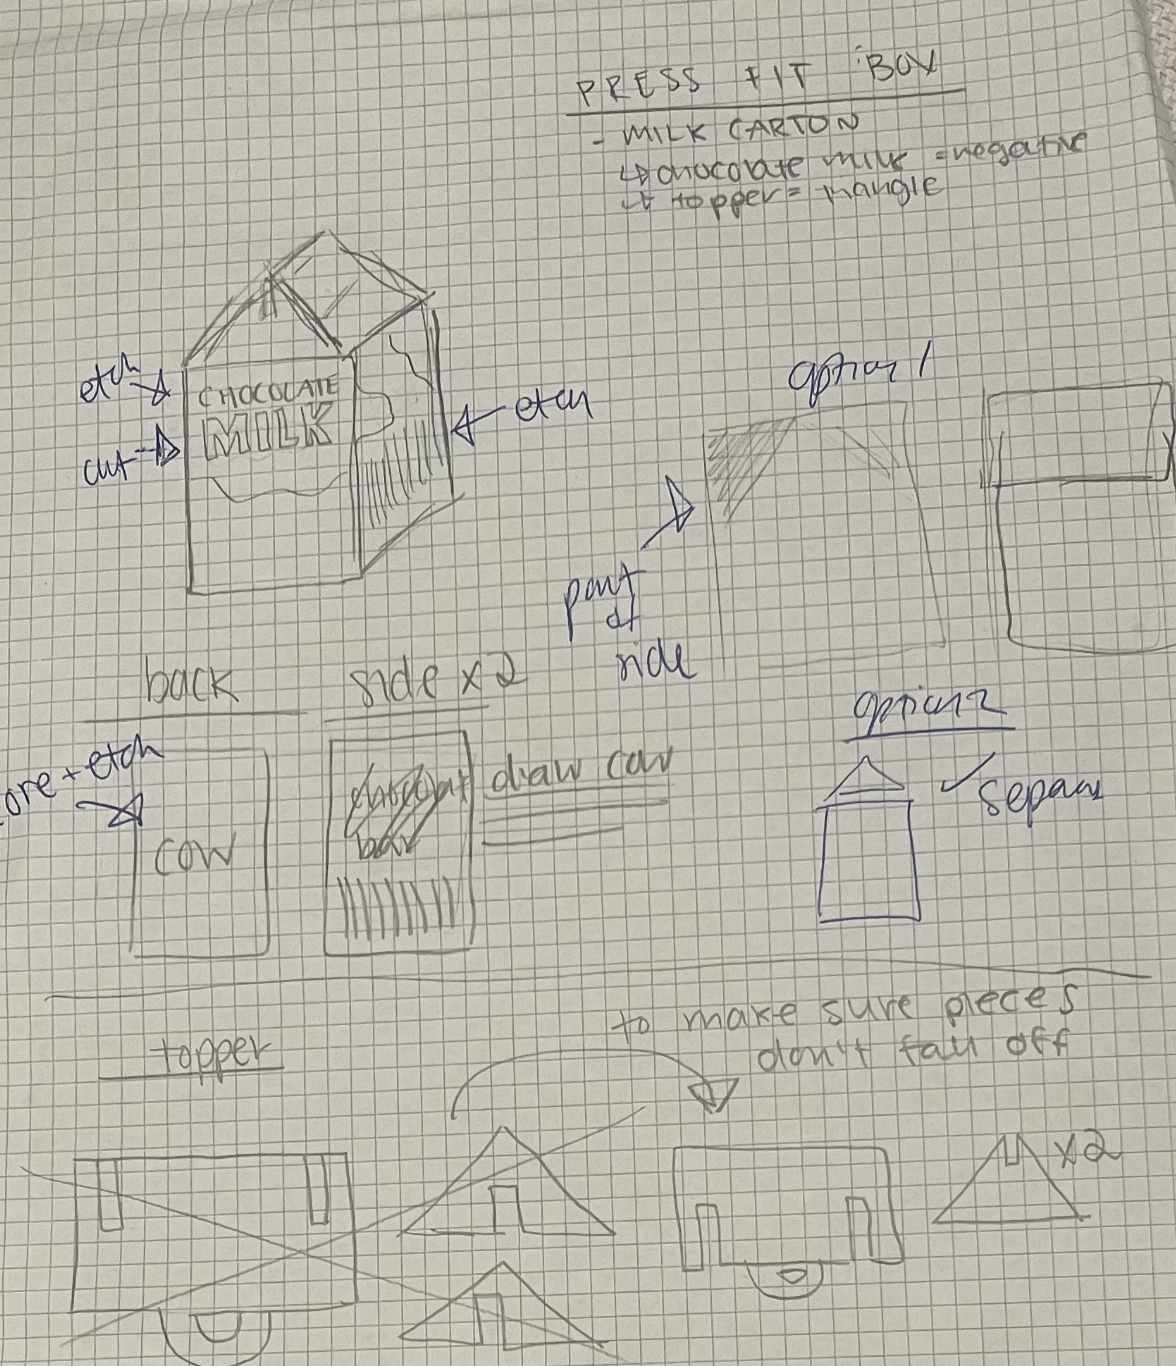 PRESS FIT BOX
- MILK CARTON
↳ chocolate milk = negative
↳ topper = triangle
etch
CHOCOLATE
MILK
cut
etch
option 1
part
of
side
back
side x2
option 2
+ etch
cow
draw cow
separate
topper
to make sure pieces
don't fall off
x2